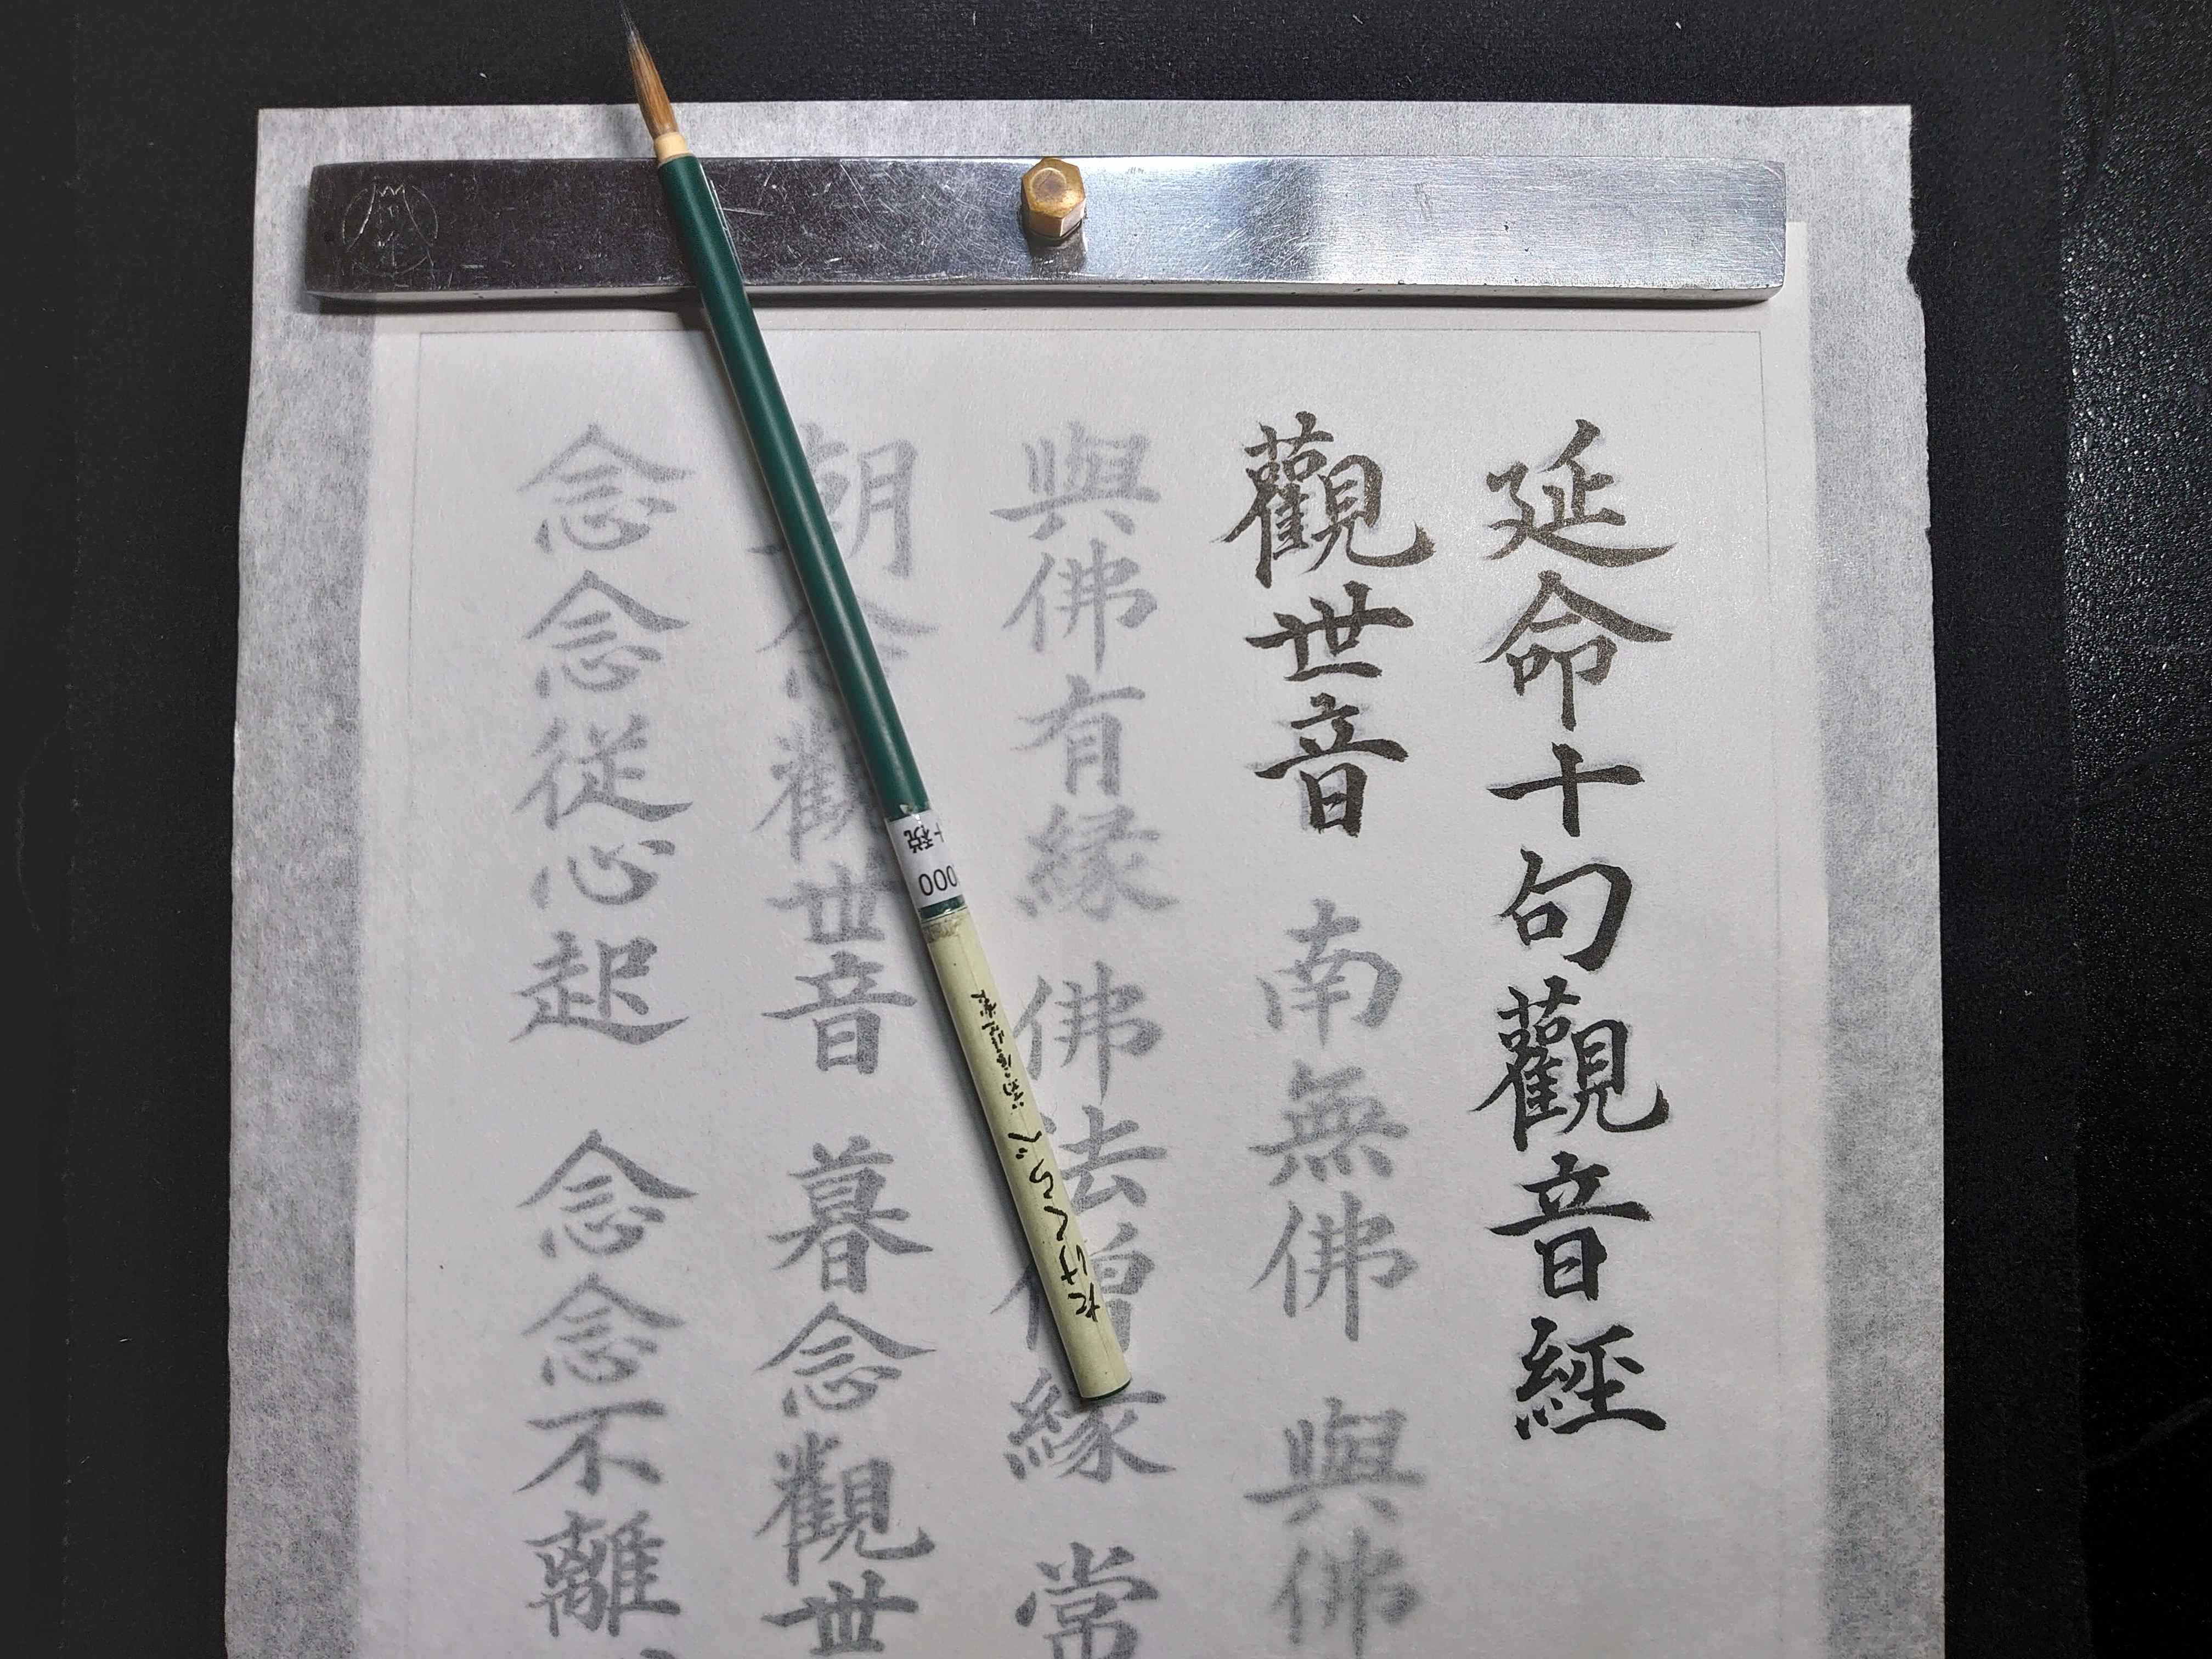 延命十句觀音經
觀世音 南無佛 與佛
與佛有縁 佛法僧縁 常
朝念觀世音 暮念觀世
念念從心起 念念不離
000
+税
たけくらべ